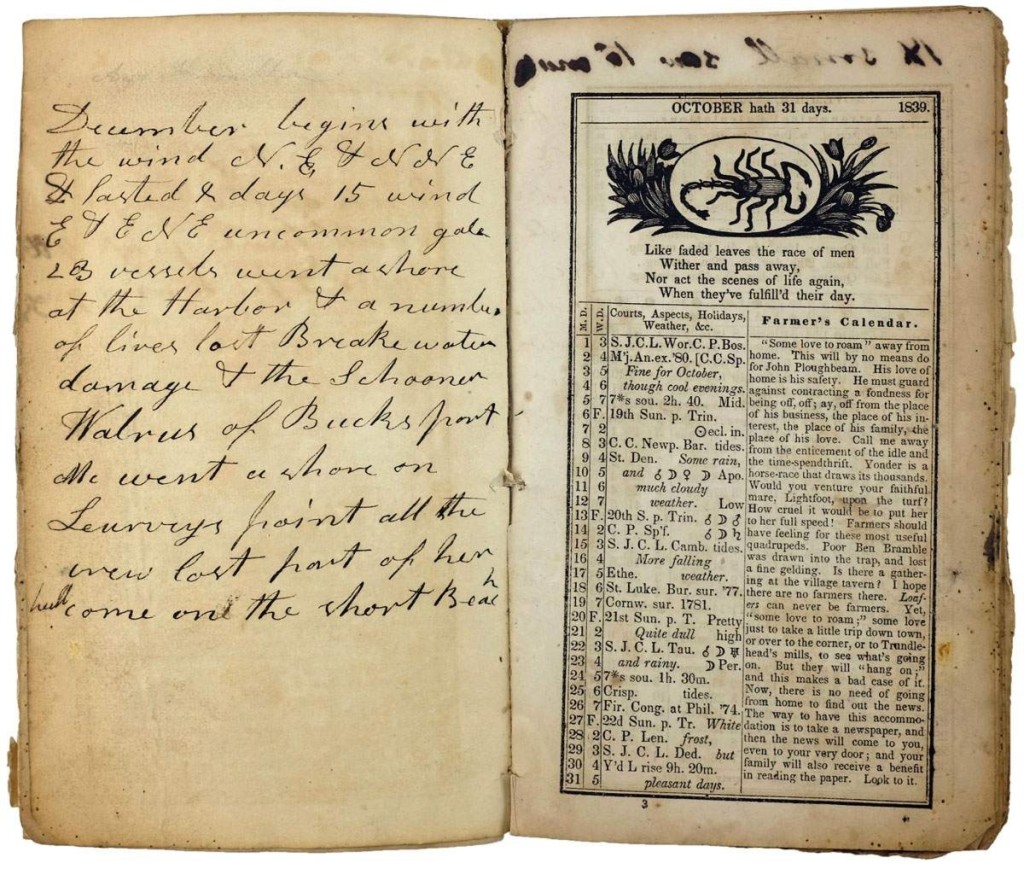 December begins with
the wind N. E. & N N E
& lasted 2 days 15 wind
E & E N E uncommon gale
23 vessels went ashore
at the Harbor & a number
of lives lost Breake water
damage & the Schooner
Walrus of Bucksport
Me went a shore on
point all the
crew lost part of her
hull come on the short Beach
OCTOBER hath 31 days. 1839.
Like faded leaves the race of men
Wither and pass away,
Nor act the scenes of life again,
When they've fulfill'd their day.
M. D. W. D. Courts, Aspects, Holidays, Weather, &c.
1 3 S. J. C. L. Wor. C. P. Bos.
2 4 M'j. An. ex. '80. [C. C. Sp.
3 5 Fine for October,
4 6 though cool evenings.
5 7 7*s sou. 2h. 40. Mid.
6 F. 19th Sun. p. Trin.
7 2 ☉ecl. in.
8 3 C. C. Newp. Bar. tides.
9 4 St. Den. Some rain,
10 5 and ☌ ☽ ♀ ☽ Apo.
11 6 much cloudy
12 7 weather. Low
13 F. 20th S. p. Trin. ☌ ☽ ♂
14 2 C. P. Sp'f. ☌ ☽ ♄
15 3 S. J. C. L. Camb. tides.
16 4 More falling
17 5 Ethe. weather.
18 6 St. Luke. Bur. sur. '77.
19 7 Cornw. sur. 1781.
20 F. 21st Sun. p. T. Pretty
21 2 Quite dull high
22 3 S. J. C. L. Tau. ☌ ☽ ♅
23 4 and rainy. ☽ Per.
24 5 7*s sou. 1h. 30m.
25 6 Crisp. tides.
26 7 Fir. Cong. at Phil. '74.
27 F. 22d Sun. p. Tr. White
28 2 C. P. Len. frost,
29 3 S. J. C. L. Ded. but
30 4 Y'd L rise 9h. 20m.
31 5 pleasant days.
Farmer's Calendar.
"Some love to roam" away from
home. This will by no means do
for John Ploughbeam. His love of
home is his safety. He must guard
against contracting a fondness for
being off, off; ay, off from the place
of his business, the place of his in-
terest, the place of his family, the
place of his love. Call me away
from the enticement of the idle and
the time-spendthrift. Yonder is a
horse-race that draws its thousands.
Would you venture your faithful
mare, Lightfoot, upon the turf?
How cruel it would be to put her
to her full speed! Farmers should
have feeling for these most useful
quadrupeds. Poor Ben Bramble
was drawn into the trap, and lost
a fine gelding. Is there a gather-
ing at the village tavern? I hope
there are no farmers there. Loaf-
ers can never be farmers. Yet,
"some love to roam;" some love
just to take a little trip down town,
or over to the corner, or to Trundle-
head's mills, to see what's going
on. But they will "hang on;"
and this makes a bad case of it.
Now, there is no need of going
from home to find out the news.
The way to have this accommo-
dation is to take a newspaper, and
then the news will come to you,
even to your very door; and your
family will also receive a benefit
in reading the paper. Look to it.
3